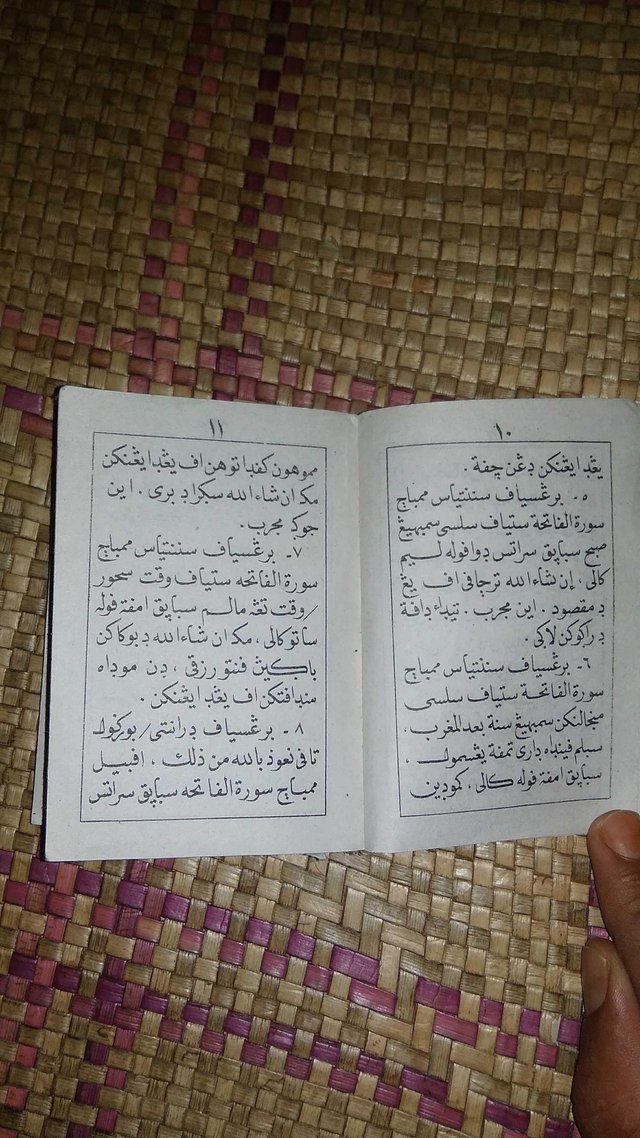 ١٠
يڠد ايڠنكن دڠن چفة .
٥ـ برڠسياف سننتياس ممباچ
سورة الفاتحة ستياف سلسى سمبهيڠ
صبح سباپق سراتس دوافوله ليم
كالى ، إن شاء الله ترچافى اف يڠ
دمقصود . اين مجرب . تيداء دافة
دراكوكن لاݢى .
٦ـ برڠسياف سننتياس ممباچ
سورة الفاتحة ستياف سلسى
منجالنكن سمبهيڠ سنة بعد المغرب ،
سبلم فينده دارى تمفة يڠسموله ،
سباپق امفة فوله كالى ، كمودين
١١
مموهون كفد توهن اف يڠد ايڠنكن
مك ان شاء الله سݢراد برى . اين
جوݢ مجرب .
٧ـ برڠسياف سننتياس ممباچ
سورة الفاتحه ستياف وقت سحور
/وقت تڠه مالم سباپق امفة فوله
ساتو كالى ، مك ان شاء الله دبوكاكن
باݢيڽ فنتو رزقى ، دن موداه
مندافتكن اف يڠد ايڠنكن .
٨ ـ برڠسياف درانتى/بوركولد
تافى نعوذ بالله من ذلك ، افبيل
ممباچ سورة الفاتحه سباپق سراتس